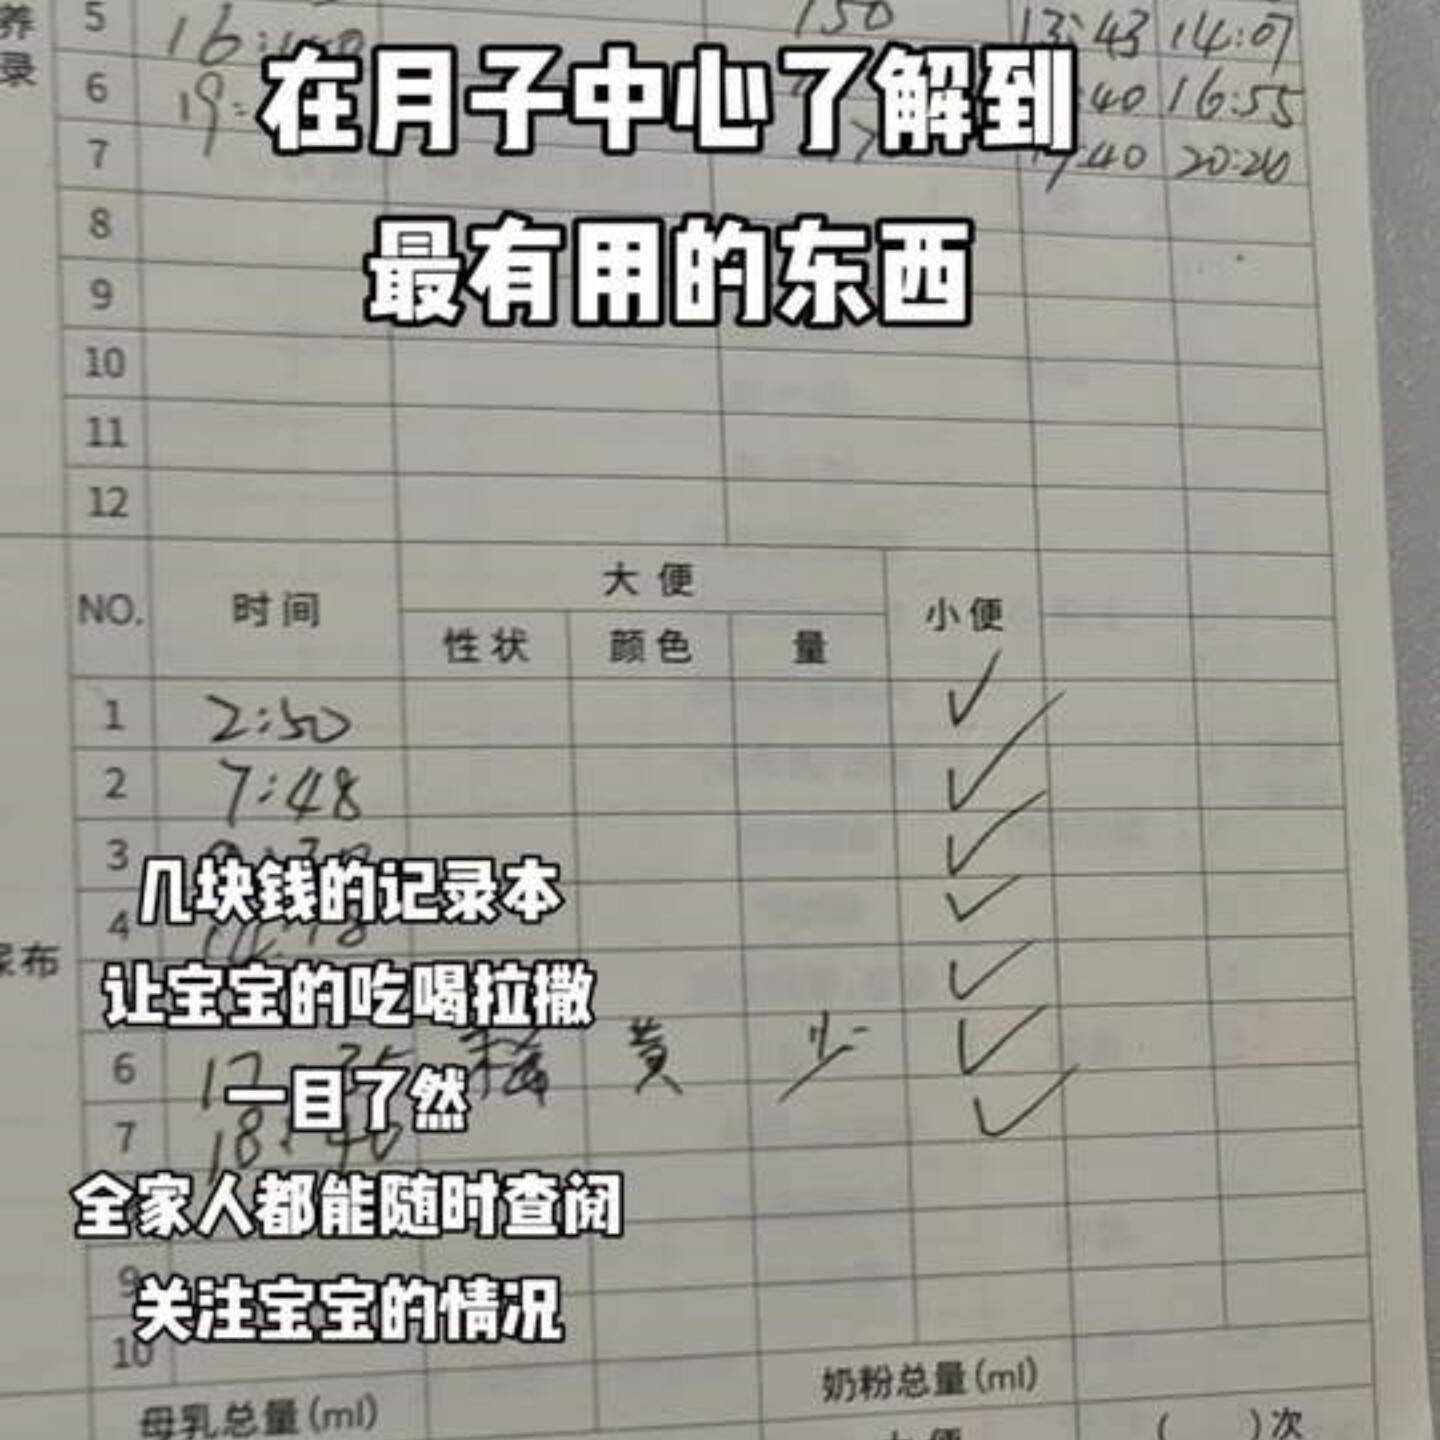 养
录
5 150 13:43 14:07
6 16:55
7 20:20
在月子中心了解到
最有用的东西
8
9
10
11
12
NO. 时间 大便 小便
性状 颜色 量
1 2:50 ✓
2 7:48 ✓
3 ✓
4 ✓
✓
几块钱的记录本
让宝宝的吃喝拉撒
一目了然
全家人都能随时查阅
关注宝宝的情况
布
6 稀 黄 少 ✓
7 18:40 ✓
9
10
母乳总量(ml) 奶粉总量(ml)
大便 ( )次